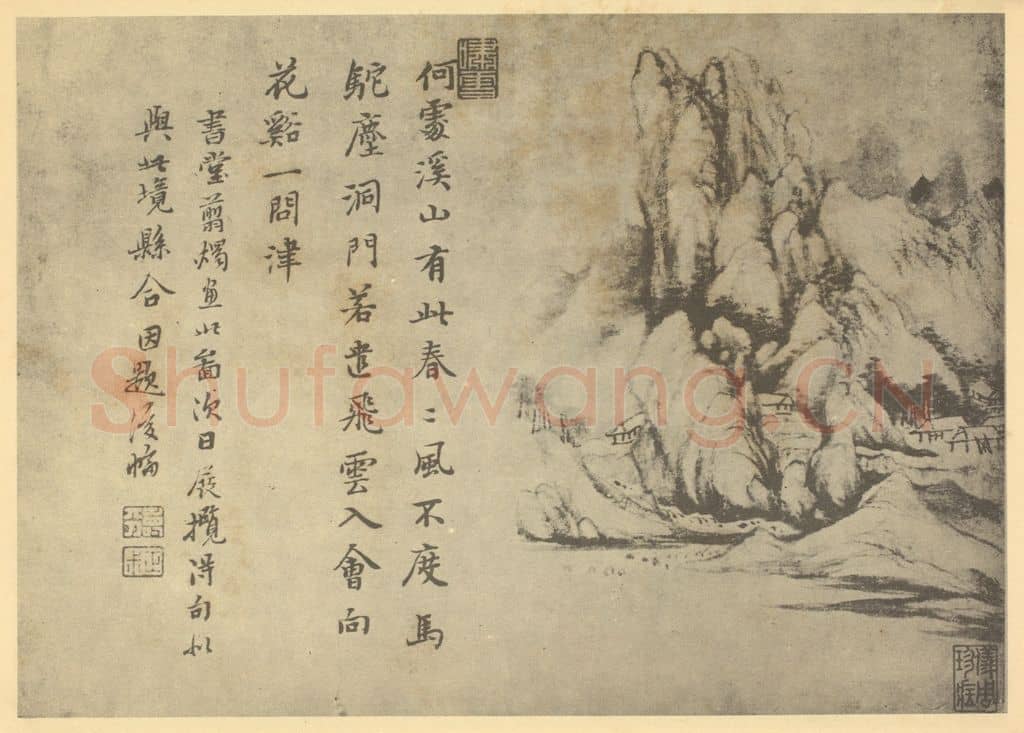 何處溪山有此春〻風不度馬
駝塵洞門若遣飛雲入會向
花谿一問津
書堂翦燭畫此啚次日展攬得句似
與此境縣合因題後幅
Shufawang.CN